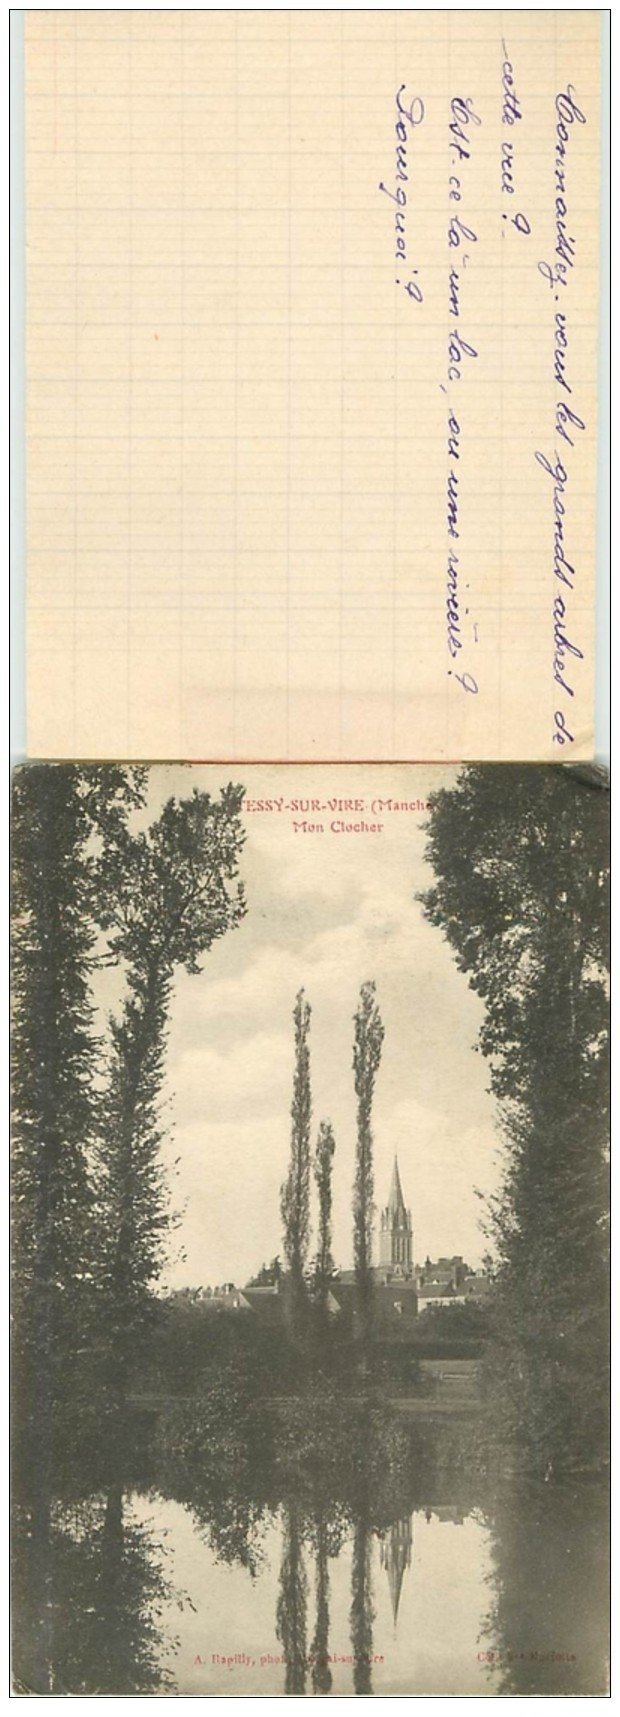 Connaissez-vous les grands arbres de
cette vue ?
Est-ce là un lac, ou une rivière ?
Pourquoi ?
TESSY-SUR-VIRE (Manche
Mon Clocher
A. Rapilly, phot.